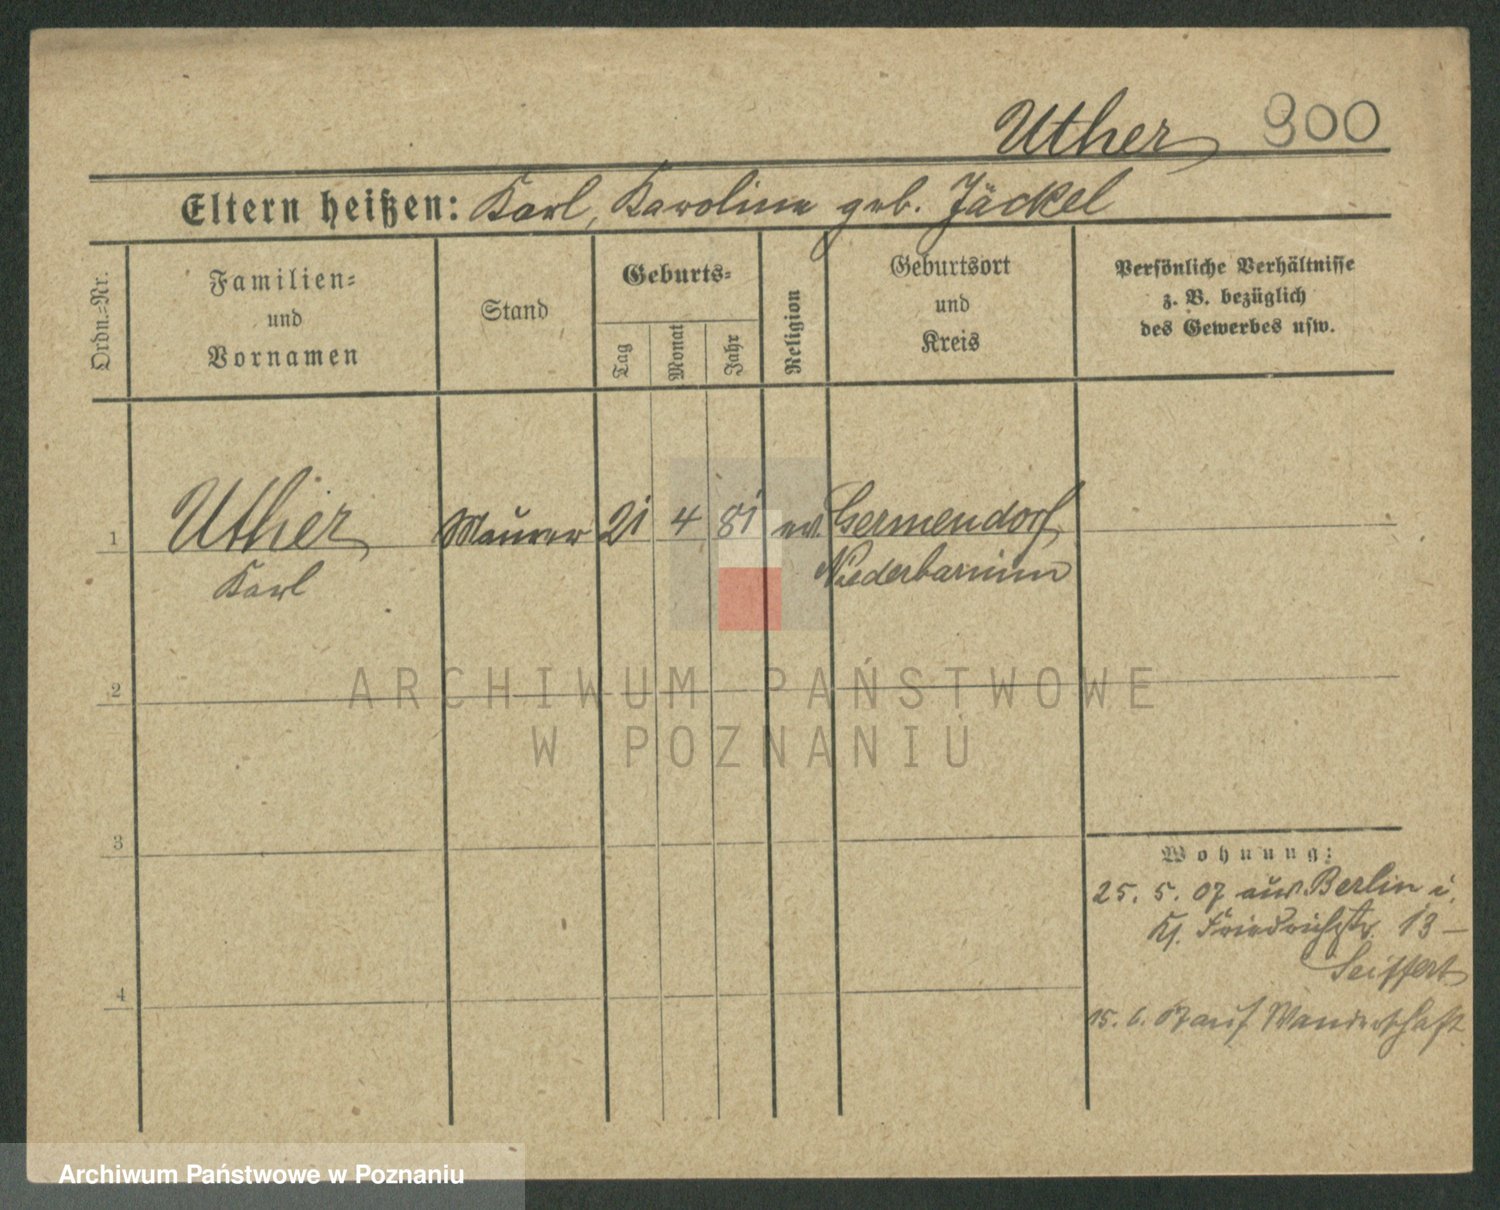 Uther 900
Eltern heißen: Karl, Karoline geb. Jäckel
Ordn.-Nr.
Familien-
und
Vornamen
Stand
Geburts-
Tag
Monat
Jahr
Religion
Geburtsort
und
Kreis
Persönliche Verhältnisse
z. B. bezüglich
des Gewerbes usw.
1 Uther Maurer 21 4 81 ev. Germendorf
Karl Niederbarnim
2
ARCHIWUM PAŃSTWOWE
W POZNANIU
3
Wohnung:
25. 5. 07 aus Berlin i.
Kl. Friedrichstr. 13 –
Seiffert
4
15. 6. auf Wanderschaft
Archiwum Państwowe w Poznaniu